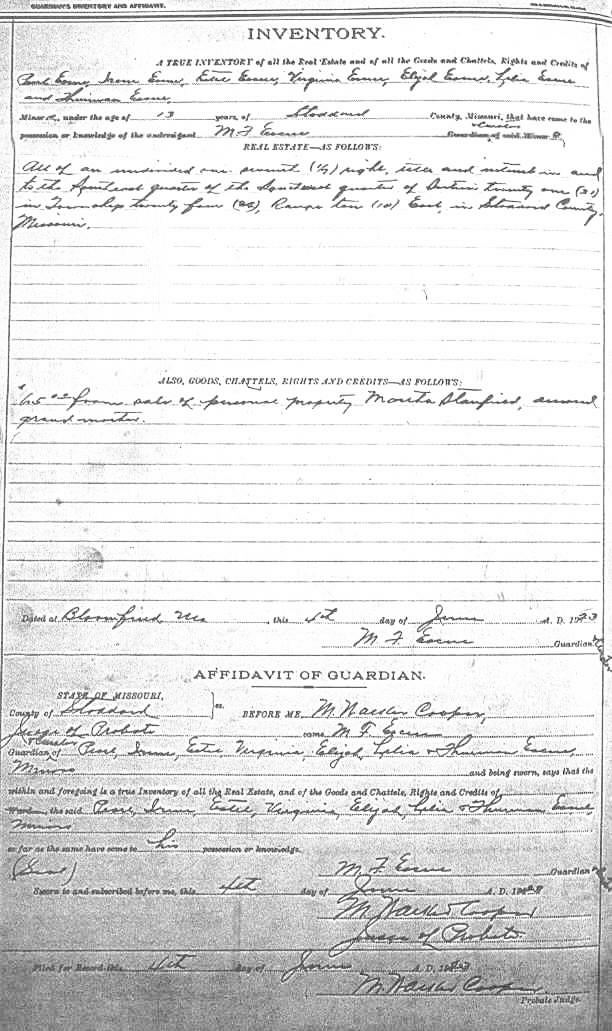 GUARDIAN'S INVENTORY AND AFFIDAVIT.
INVENTORY.
A TRUE INVENTORY of all the Real Estate and of all the Goods and Chattels, Rights and Credits of
Pearl Irene Estie Virginia Elijah Lelia
and Thurman
Minors, under the age of 13 years, of Stoddard County, Missouri, that have come to the
possession or knowledge of the undersigned M F & Curator Guardian of said Minor s
REAL ESTATE—AS FOLLOWS:
All of an undivided one seventh (1/7) right, title and interest in and
to the Southeast quarter of the Southwest quarter of Section twenty one (21)
in Township twenty Range ten (10) East, in Stoddard County,
Missouri.
ALSO, GOODS, CHATTELS, RIGHTS AND CREDITS—AS FOLLOWS:
from sale of personal property Martha Stanfield,
grand mother.
Dated at Bloomfield Mo , this 4th day of June A. D. 1923
M F Guardian & Curator
AFFIDAVIT OF GUARDIAN.
STATE OF MISSOURI,
County of Stoddard } ss. BEFORE ME M. Walker Cooper,
Judge of Probate came M F
& Curator
Guardian of Pearl, Irene, Estie Virginia, Elijah, Lelia & Thurman
Minors and being sworn, says that the
within and foregoing is a true Inventory of all the Real Estate, and of the Goods and Chattels, Rights and Credits of
the said Pearl, Irene, Estie, Virginia, Elijah, Lelia & Thurman
Minors
so far as the same have come to his possession or knowledge.
(Seal) M F Guardian
Sworn to and subscribed before me, this 4th day of June A. D. 19
M. Walker Cooper
Judge of Probate
Filed for Record this 4th day of June A. D. 1923
M. Walker Cooper
Probate Judge.